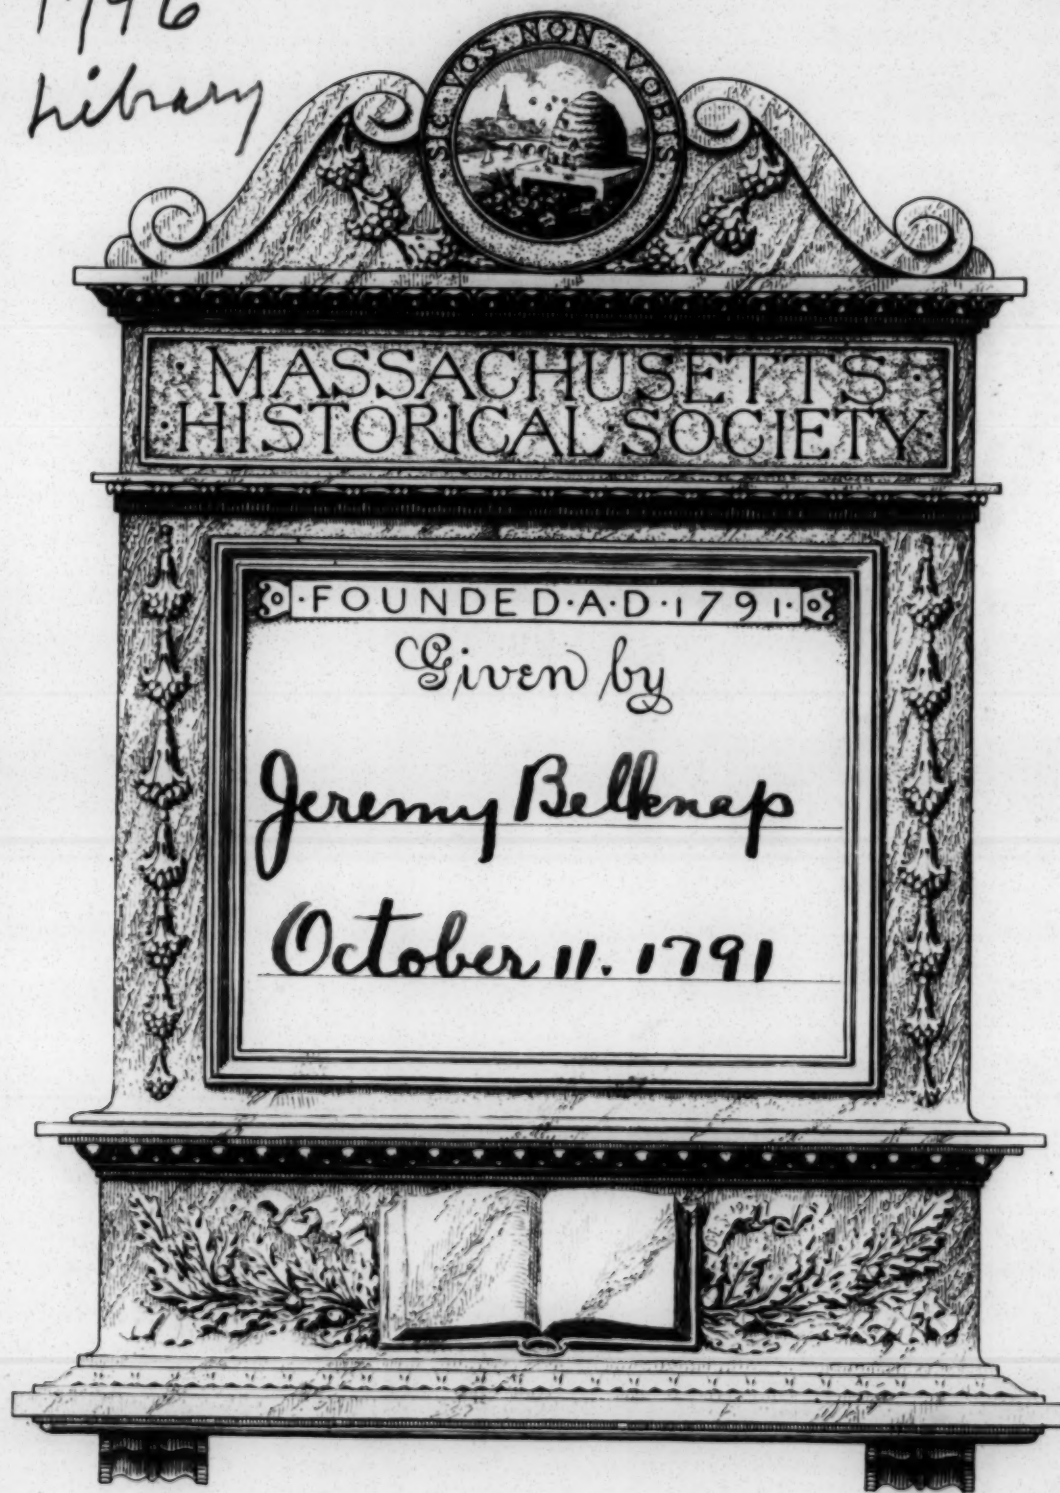 1796
Library
SIC·VOS·NON·VOBIS
·MASSACHUSETTS·
·HISTORICAL·SOCIETY·
·FOUNDED·A·D·1791·
Given by
Jeremy Belknap
October 11. 1791